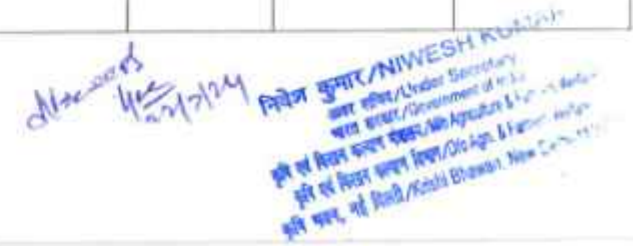 22/7/24
निवेश कुमार/NIWESH KUMAR
अवर सचिव/Under Secretary
भारत सरकार/Government of India
कृषि एवं किसान कल्याण मंत्रालय/M/o Agriculture & Farmers Welfare
कृषि एवं किसान कल्याण विभाग/D/o Agri. & Farmers Welfare
कृषि भवन, नई दिल्ली/Krishi Bhawan, New Delhi